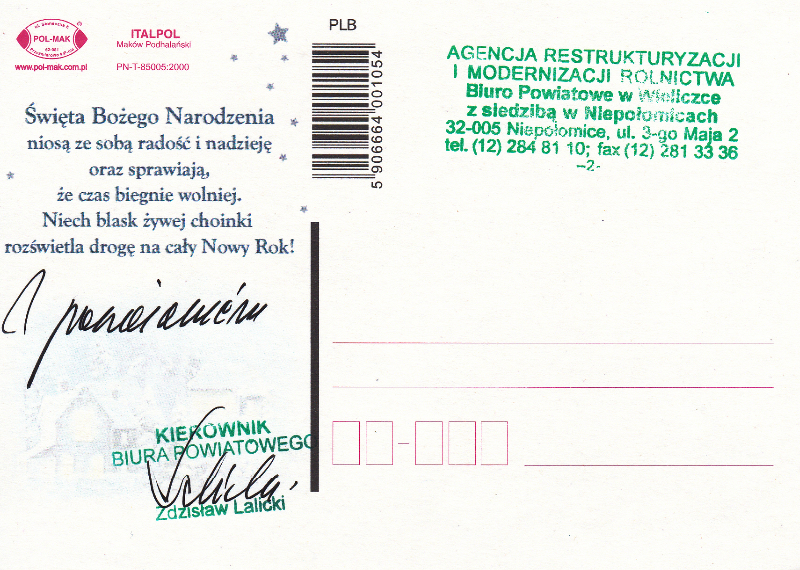 POL-MAK
www.pol-mak.com.pl
ITALPOL
Maków Podhalański
PN-T-85005:2000
PLB
5 906664 001054
AGENCJA RESTRUKTURYZACJI
I MODERNIZACJI ROLNICTWA
Biuro Powiatowe w Wieliczce
z siedzibą w Niepołomicach
32-005 Niepołomice, ul. 3-go Maja 2
tel. (12) 284 81 10; fax (12) 281 33 36
–2-
Święta Bożego Narodzenia
niosą ze sobą radość i nadzieję
oraz sprawiają,
że czas biegnie wolniej.
Niech blask żywej choinki
rozświetla drogę na cały Nowy Rok!
KIEROWNIK
BIURA POWIATOWEGO
Zdzisław Lalicki